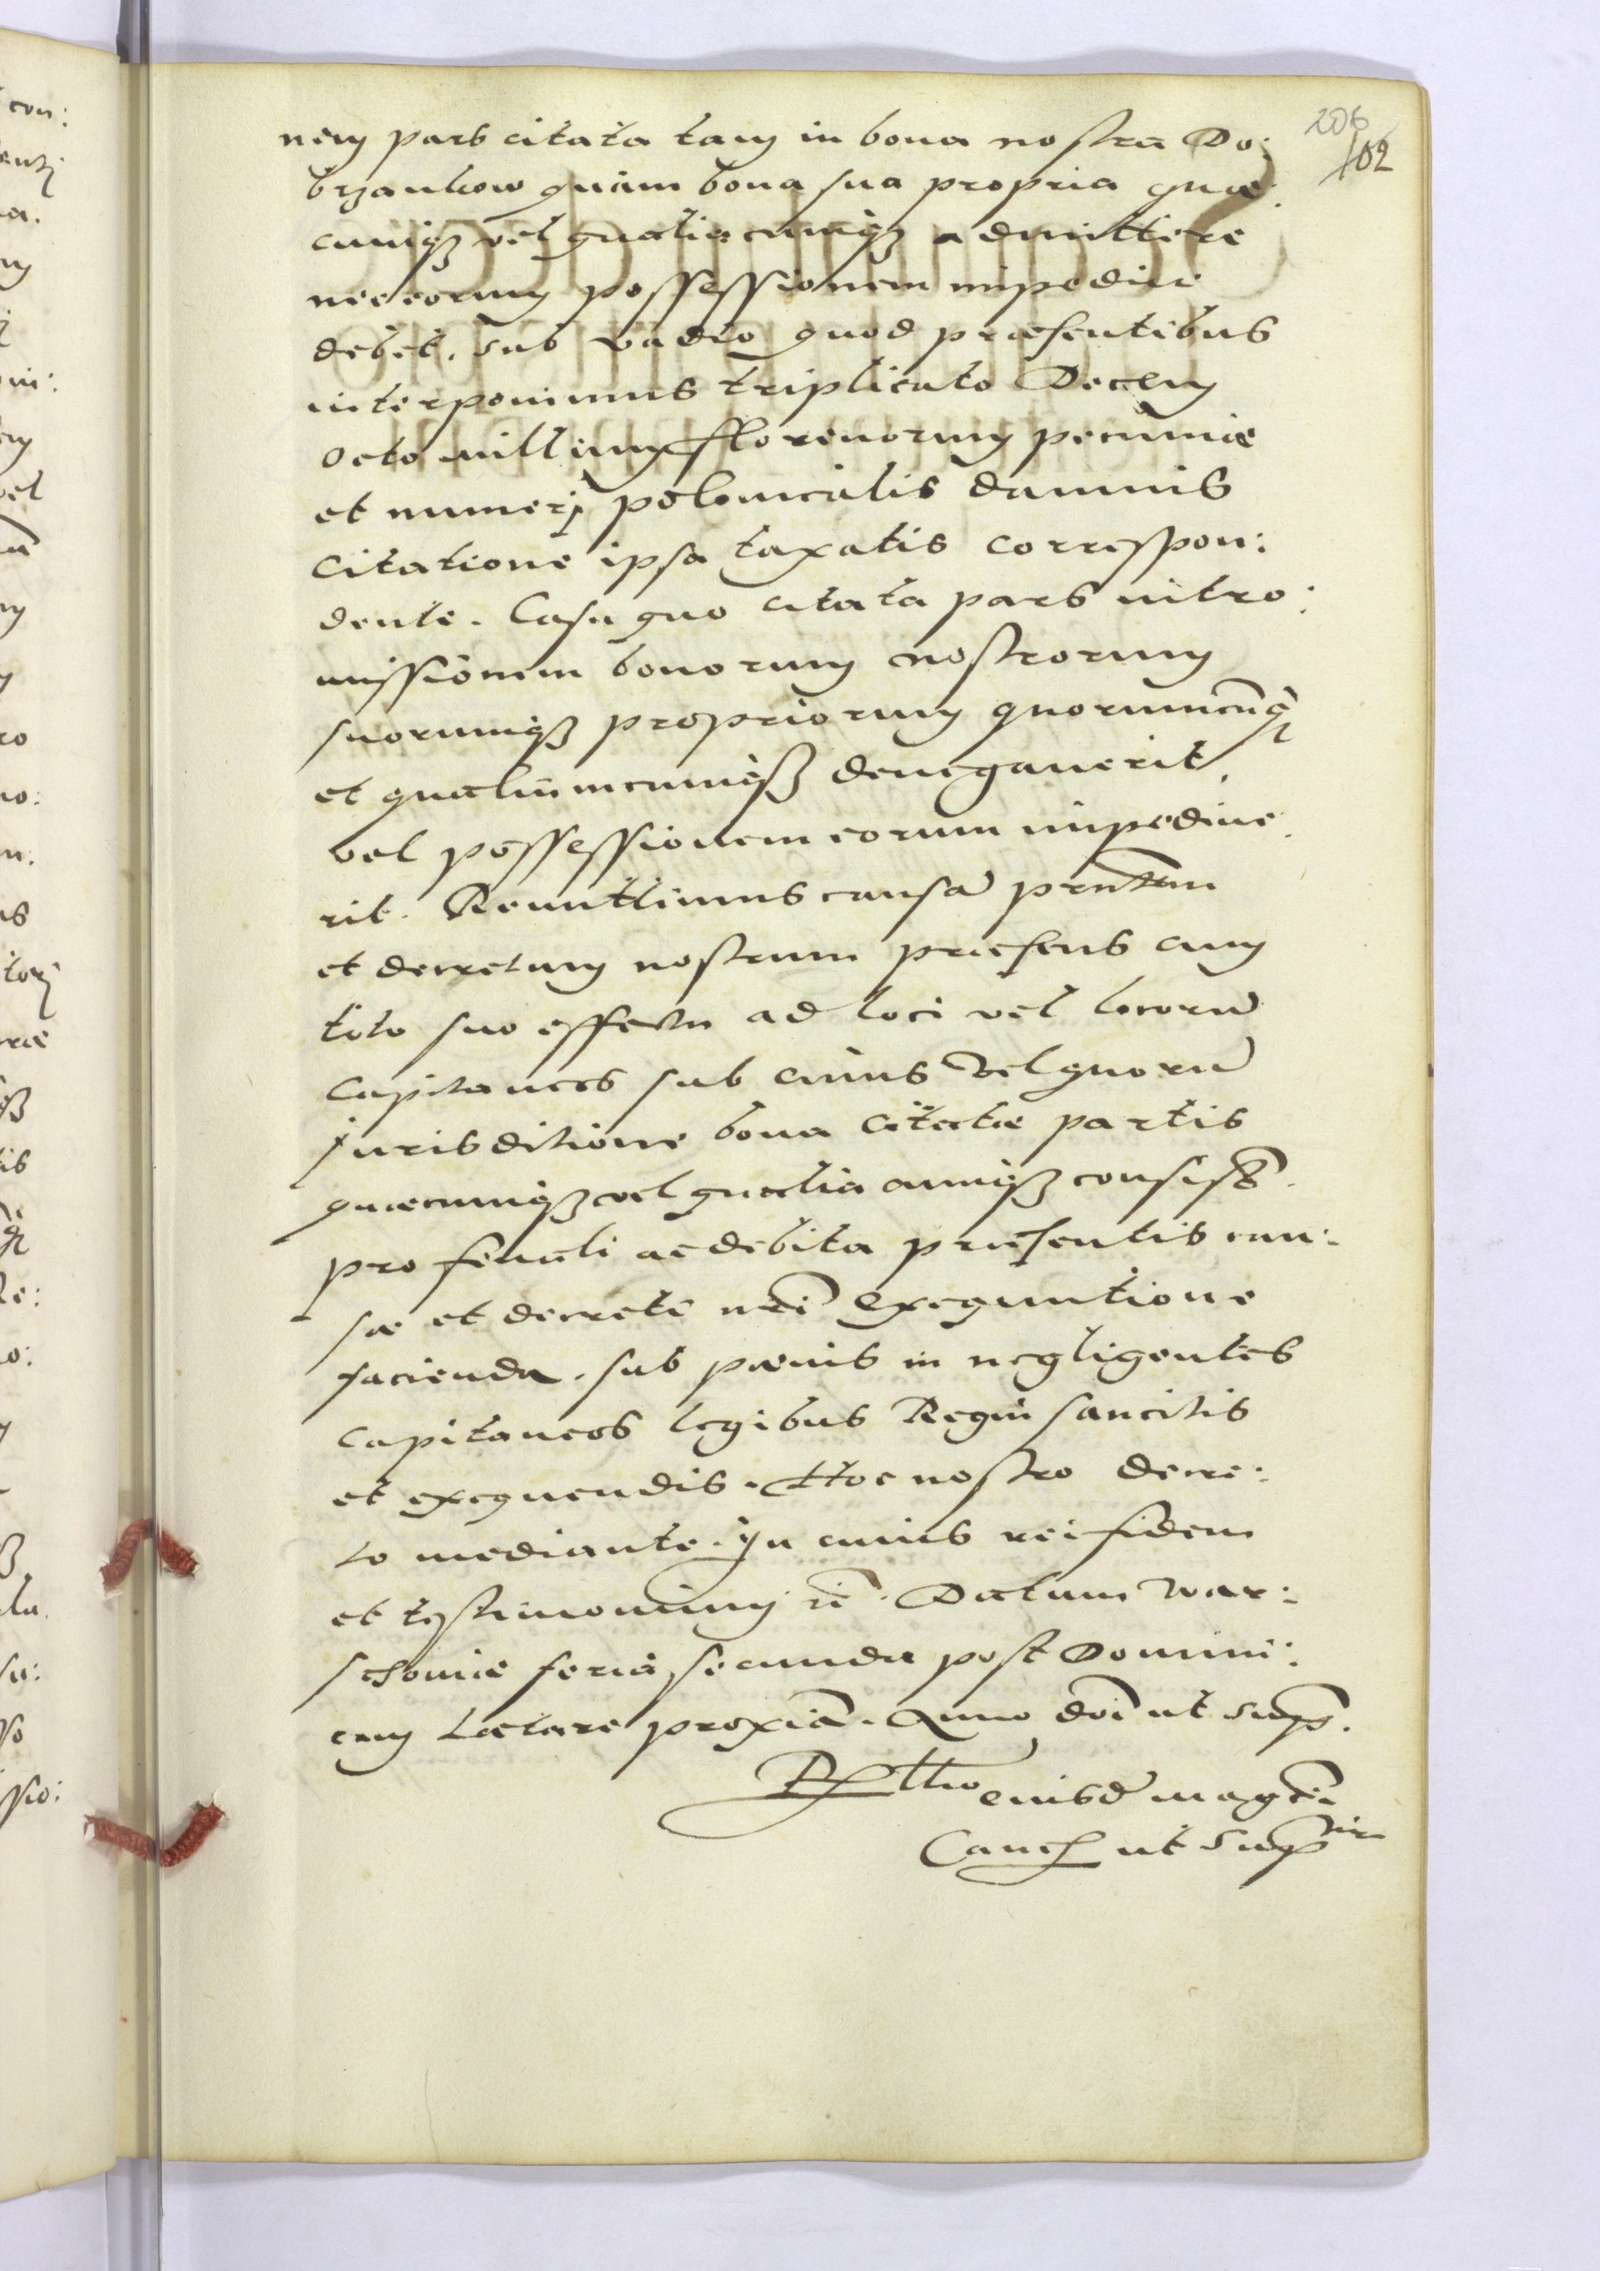 206
102
nem pars citata tam in bona nostra Do:
brzankow quàm bona sua propria quæ:
cunqȝ vel qualiacunqȝ admittere
nec eorum possessionem impedire
debet. sub vadio quod præsentibus
interponimus triplicato Decem
octo millium florenorum pecuniæ
et numeri polonicalis damnis
citatione ipsa taxatis correspon:
dente. Casu quo citata pars intro:
missionem bonorum nostrorum
suorumqȝ propriorum quorumcūq
et qualiumcumqȝ denegauerit,
vel possessionem eorum impediue:
rit. Remittimus causā prntem
et decretum nostrum præsens cum
toto suo effectu ad loci vel locorū
Capitaneos sub cuius vel quorū
jurisditione bona Citatæ partis
quæcunqȝ vel qualiacunqȝ consist.
pro finali ac debita præsentis cau:
sæ et decreti nri exequutione
facienda. sub pænis in negligentes
Capitaneos legibus Regni sancitis
et exequendis. Hoc nostro decre:
to mediante. In cuius rei fidem
et testimonium rē. Datum War:
schoviæ feria secunda post Domini:
cam Lætare proximā. Anno dni ut supra.
Rltio eiusdē magci
Canc ut supra